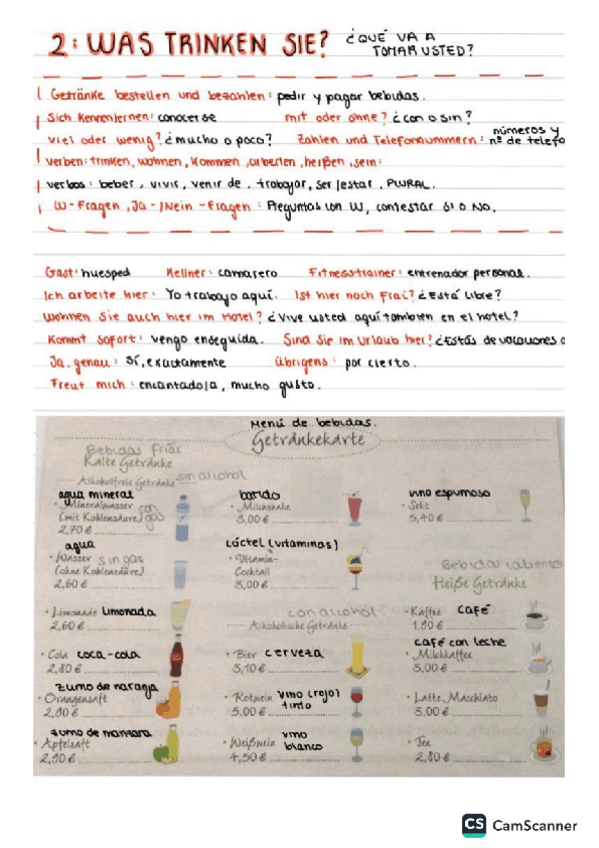 2: WAS TRINKEN SIE? ¿QUÉ VA A TOMAR USTED?
Getränke bestellen und bezahlen: pedir y pagar bebidas.
Sich kennenlernen: conocerse mit oder ohne? ¿con o sin?
viel oder wenig? ¿mucho o poco? Zahlen und Telefonnummern: números y nº de telefo
verben: trinken, wohnen, kommen, arbeiten, heißen, sein:
verbos: beber, vivir, venir de, trabajar, ser/estar, PLURAL.
W-Fragen, Ja-/Nein-Fragen: Preguntas con W, contestar SI O NO.
Gast: huesped Kellner: camarero Fitnesstrainer: entrenador personal.
Ich arbeite hier: Yo trabajo aquí. Ist hier noch frei? ¿Está libre?
Wohnen Sie auch hier im Hotel? ¿Vive usted aquí tambien en el hotel?
Kommt sofort: vengo enseguida. Sind Sie im Urlaub hier? ¿Estás de vacaciones a
Ja, genau: Sí, exactamente Übrigens: por cierto.
Freut mich: encantado/a, mucho gusto.
Menú de bebidas.
Getränkekarte
Bebidas frías
Kalte Getränke
Alkoholfreie Getränke sin alcohol
agua mineral
Mineralwasser con gas
(mit Kohlensäure)
2,70 €
agua
Wasser sin gas
(ohne Kohlensäure)
2,60 €
Limonade limonada
2,60 €
Cola coca-cola
2,80 €
zumo de naranja
Orangensaft
2,90 €
zumo de manzana
Apfelsaft
2,90 €
batido
Milchshake
3,00 €
cóctel (vitaminas)
Vitamin-
Cocktail
3,00 €
con alcohol
Alkoholische Getränke
Bier cerveza
3,10 €
Rotwein vino (rojo) tinto
5,00 €
Weißwein vino blanco
4,50 €
vino espumoso
Sekt
5,40 €
Bebidas calientes
Heiße Getränke
Kaffee café
1,90 €
café con leche
Milchkaffee
3,00 €
Latte Macchiato
3,00 €
Tee
2,80 €
CS CamScanner